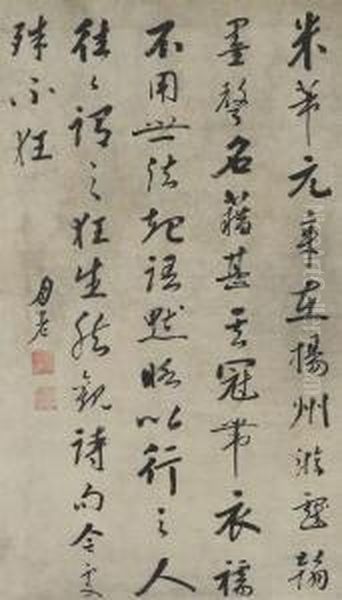 米芾元章在揚州游戲翰
墨聲名藉甚其冠帶衣襦
不用世法起語默略以行之人
往〻謂之狂生然觀詩句合處
殊不狂